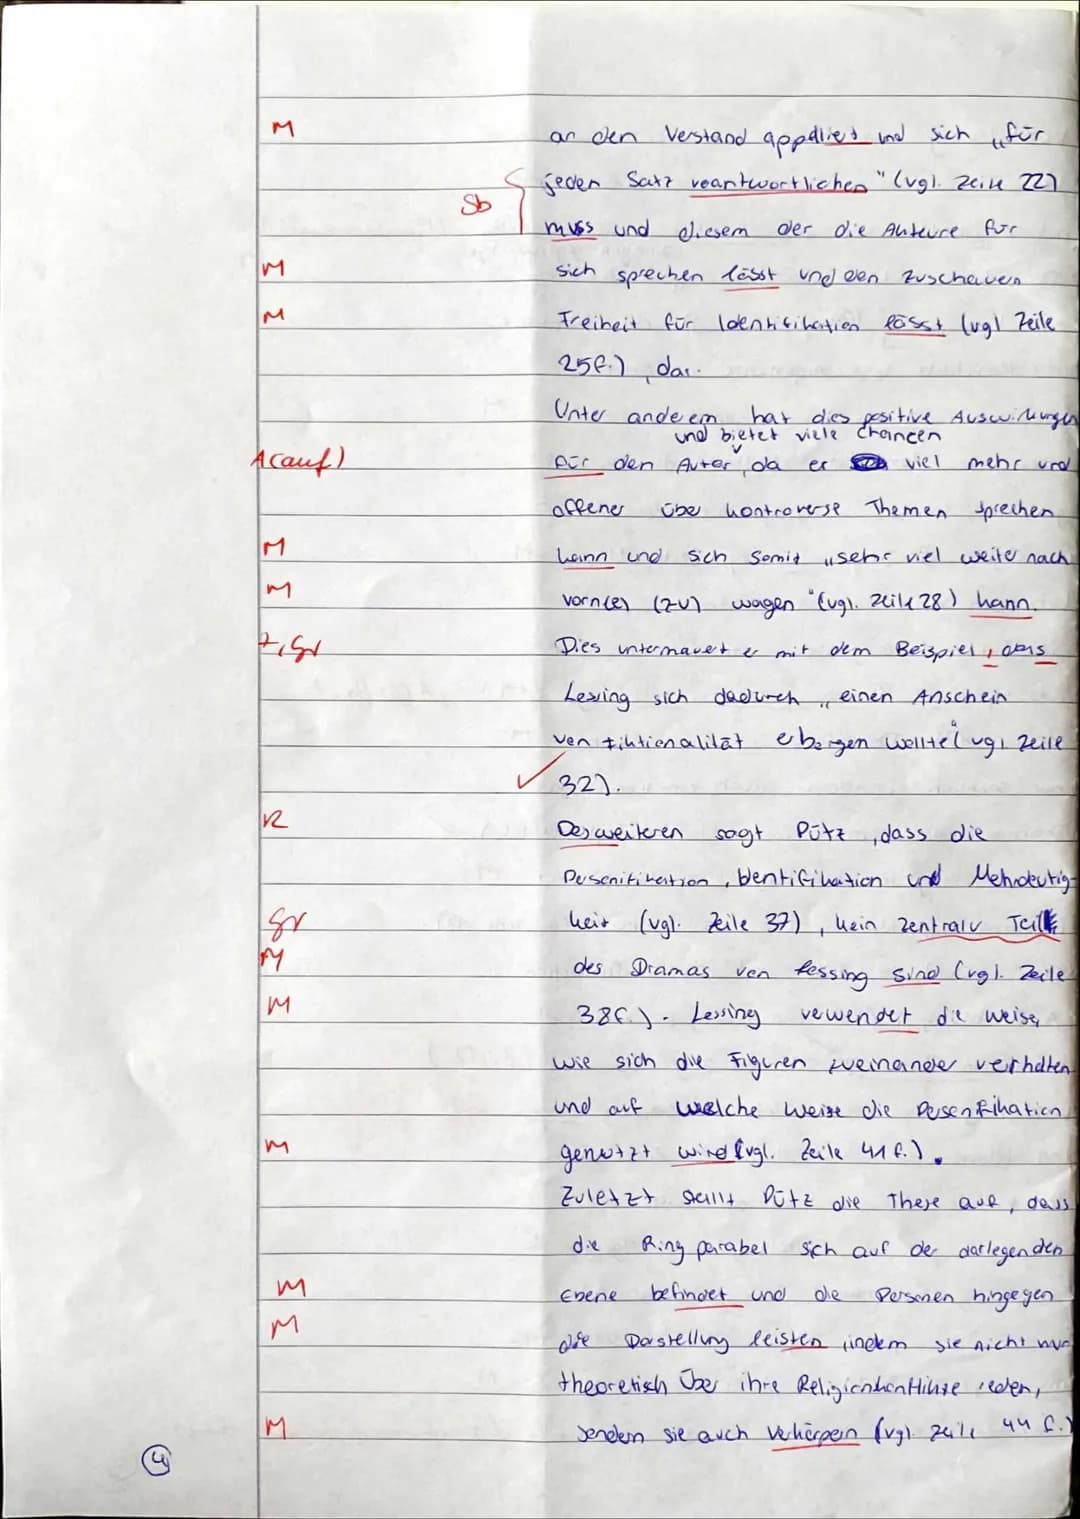 M an den Verstand appelliert und sich „für
jeden Satz veantwortlichen" (vgl. Zeile 22)
Sb muss und diesem der die Auteure für
M sich sprechen lässt und den Zuschauern
M Freiheit für Identifikation lässt (vgl Zeile
25f.), dar.
Unter anderem hat dies positive Auswirkungen
und bietet viele Chancen
A(auf) für den Autor, da er viel mehr und
offener über kontroverse Themen sprechen
M kann und sich somit „sehr viel weiter nach
M vorn(e) (zu) wagen" (vgl. Zeile 28) kann.
Z, Gr Dies untermauert er mit dem Beispiel, dass
Lessing sich dadurch „einen Anschein
von Fiktionalität erborgen wollte" (vgl. Zeile
32).
R Desweiteren sagt Pütz, dass die
Personifikation, Identifikation und Mehrdeutig-
Gr keit (vgl. Zeile 37), kein zentraler Teil
M des Dramas von Lessing sind (vgl. Zeile
M 38f.). Lessing verwendet die Weise,
wie sich die Figuren zueinander verhalten
und auf welche Weise die Personifikation
M genutzt wird (vgl. Zeile 41 f.).
Zuletzt stellt Pütz die These auf, dass
die Ringparabel sich auf der darlegenden
M Ebene befindet und die Personen hingegen
M die Darstellung leisten, indem sie nicht nur
theoretisch über ihre Religionskonflikte reden,
M sondern sie auch verkörpern (vgl. Zeile 44 f.)
4